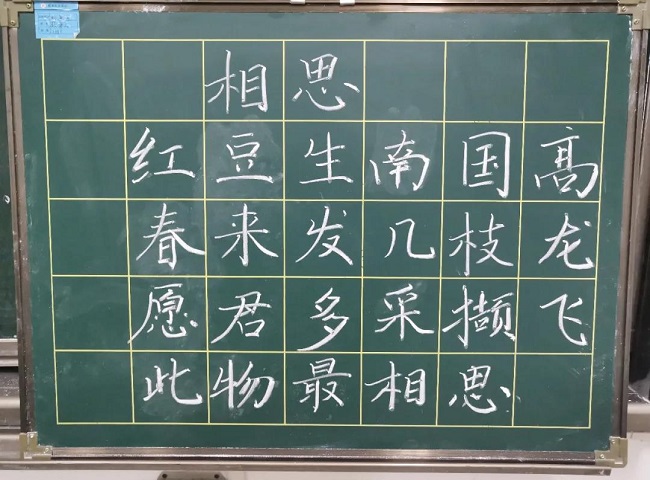 相思
红豆生南国髙
春来发几枝龙
愿君多采撷飞
此物最相思